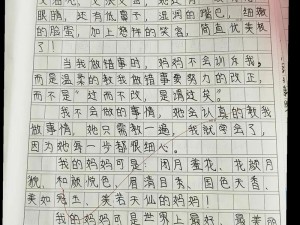 眼睛,还有低鼻子,湿润的嘴巴,细嫩
的脸蛋,加上慈祥的笑容,简直优美极
了!
当我做错事时,妈妈不会训斥我,
而是温柔的教我做错事要努力的改正,
而不是“过而不改,是谓过矣”。
我不会做的事情,她会认真的教我
做事情,她只需教一遍,我就学会了,
因为她每一步都很细心。
我的妈妈可是闭月羞花、花颜月
貌、和颜悦色,眉清目秀、国色天香、
美如冠玉、美若天仙的妈妈!
我的妈妈可是世界上最好,最美丽